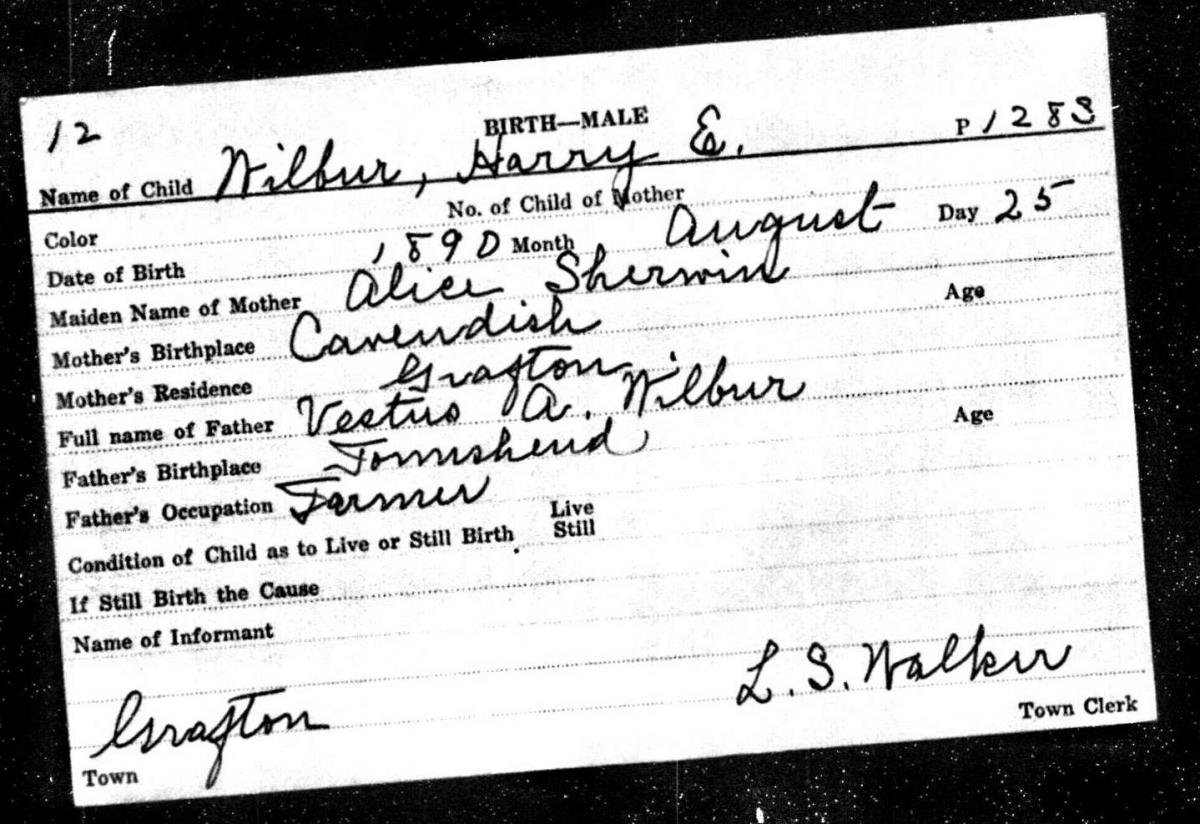 12 BIRTH—MALE P 1283
Name of Child Wilbur, Harry E.
Color No. of Child of Mother
Date of Birth 1890 Month August Day 25
Maiden Name of Mother Alice Sherwin
Mother's Birthplace Cavendish Age
Mother's Residence Grafton
Full name of Father Vestus A. Wilbur
Father's Birthplace Townshend Age
Father's Occupation Farmer
Condition of Child as to Live or Still Birth Live
Still
If Still Birth the Cause
Name of Informant
Grafton L. S. Walker
Town Town Clerk